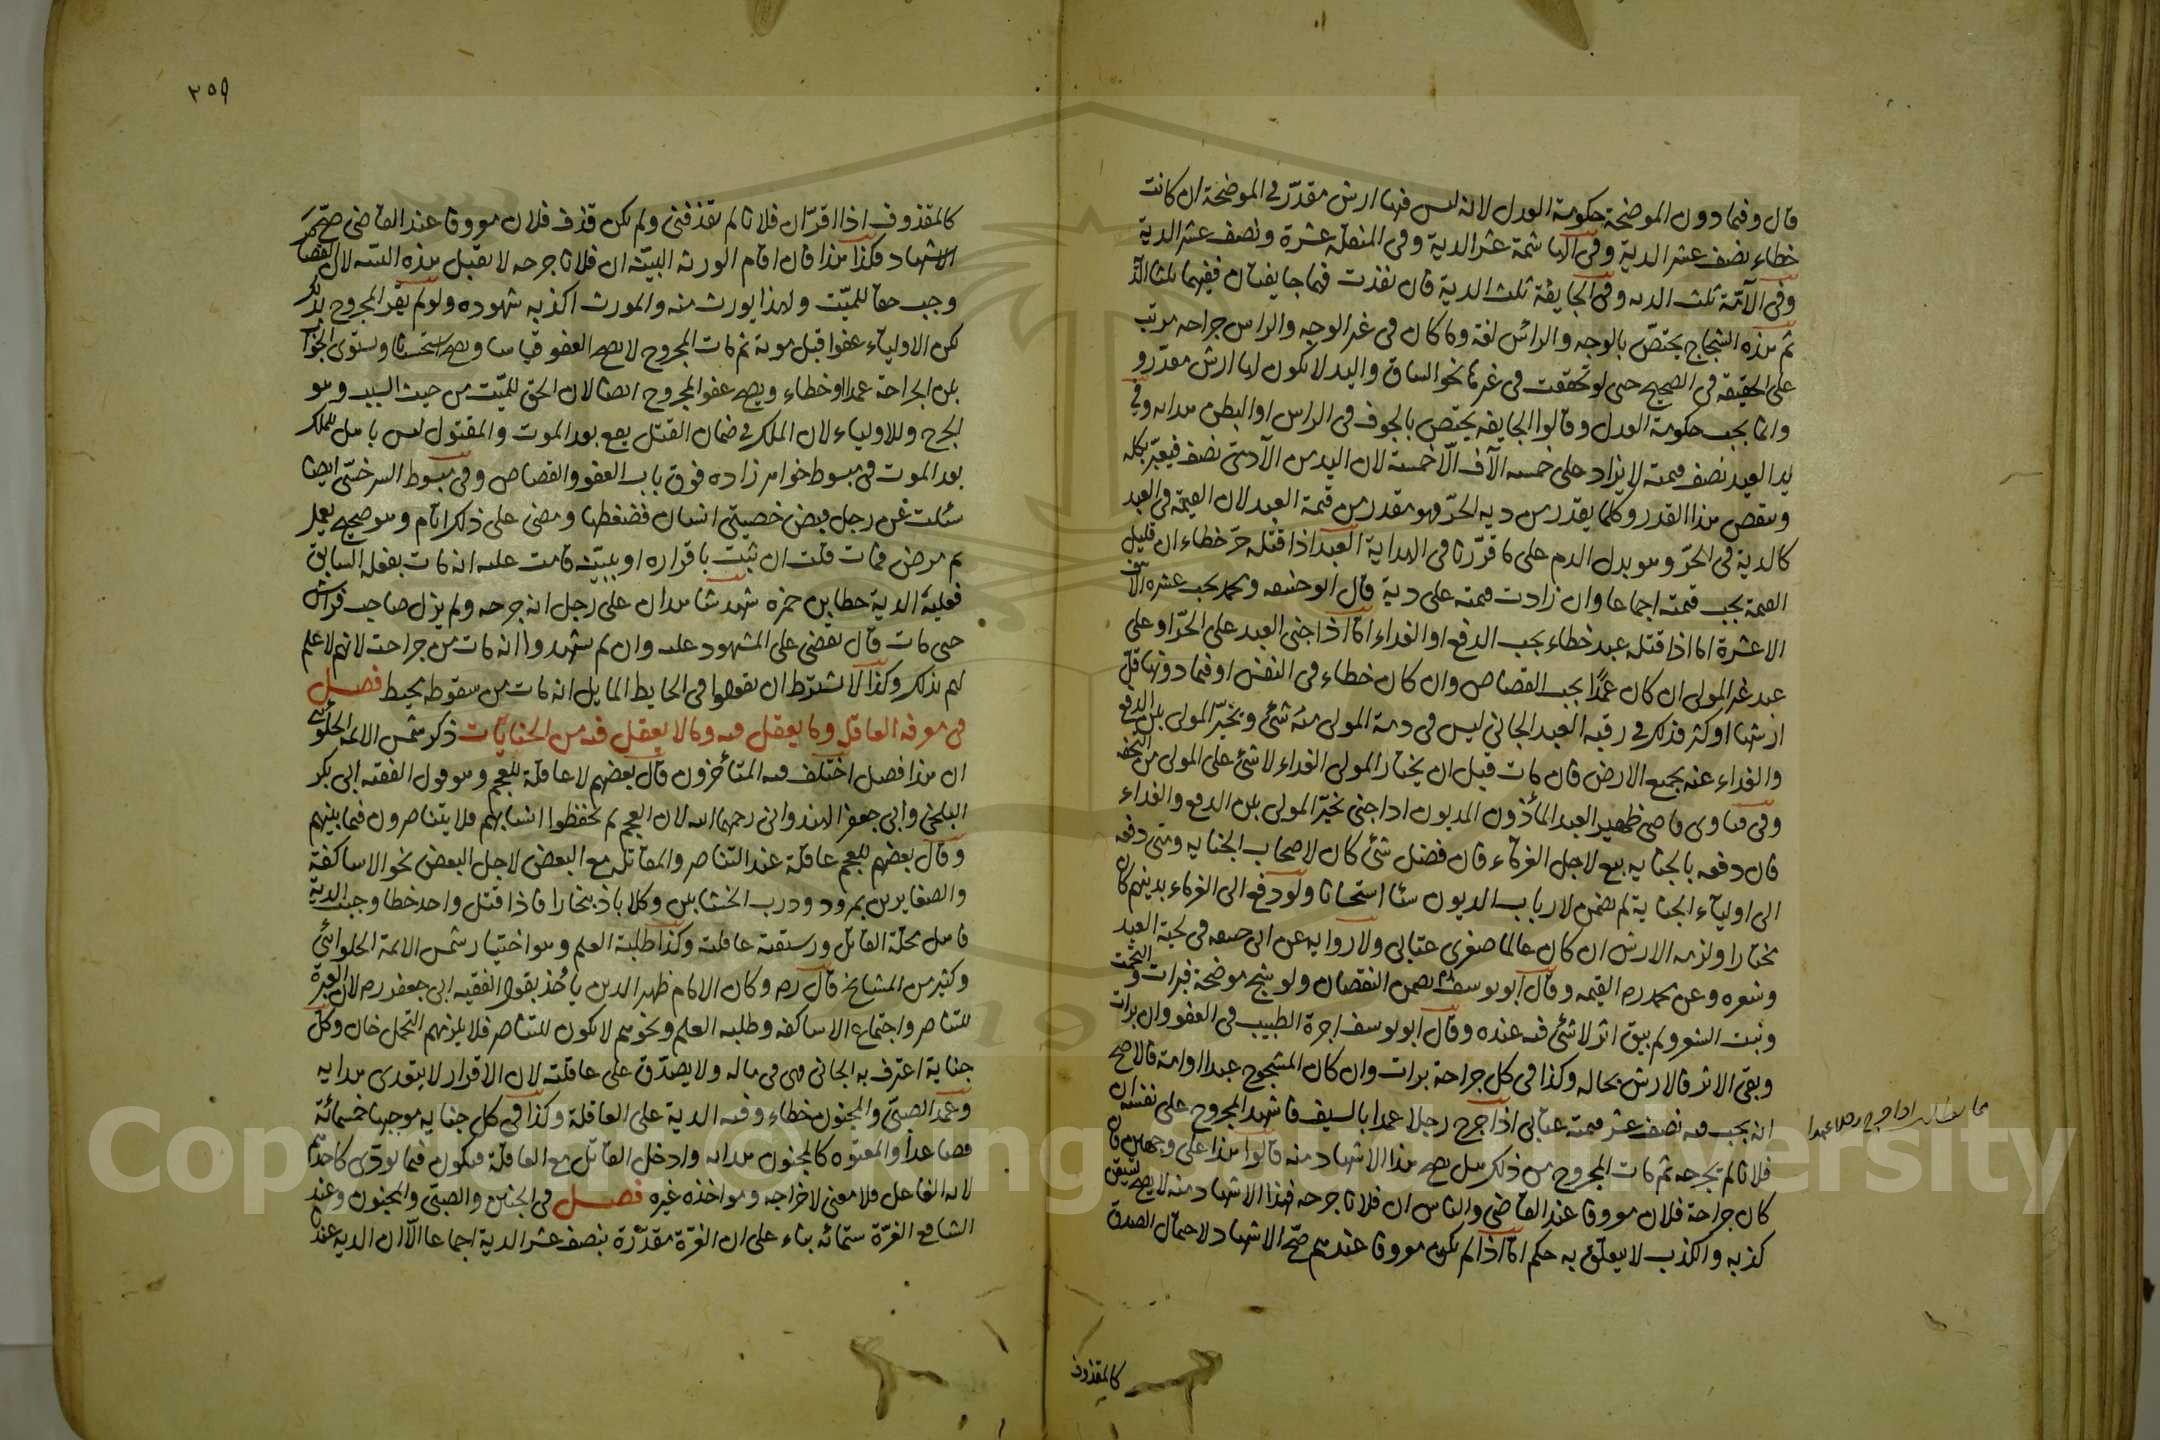 قال وفيما دون الموضحة حكومة العدل لانه ليس فيها ارش مقدّر في الموضحة ان كانت
خطاء نصف عشر الدية وفي الهاشمة عشر الدية وفي المنقلة عشرة ونصف عشر الدية
وفي الآمّة ثلث الديه وفي الجايفة ثلث الدية فان نفذت فهما جايفتان ففيهما ثلثا
ثم هذه الشجاج يختصّ بالوجه والرأس لغة وما كان في غير الوجه والراس جراحه مرتب
على الحقيقه في الصحيح حتى لو تحققت في غيرها نحو الساق واليد لا يكون لها ارش مقدّر و
وانما يجب حكومة العدل وقالوا الجايفه يختص بالجوف في الراس او البطن هدايه وفي
يد العبد نصف قيمته لا يزاد على خمسه الآف الّا خمسة لان اليد من الآدمىّ نصف فيعتبر بكله
وينقص هذا القدر وكلما يقدّر من ديه الحرّ فهو مقدر من قيمة العبد لان القيمة في العبد
كالدية في الحرّ وهو بدل الدم على ما قرّرنا في الهداية العبد اذا قتله حرّ خطاء ان قليل
القيمة يجب قيمته اجماعا وان زادت قيمته على دية قال ابو حنيفه ومحمد يجب عشره الآف
الا عشرة اما اذا قتله عبد خطاء يجب الدفع او الفداء امّا اذا جنى العبد على الحرّ او على
عبد غير المولى ان كان عمدًا يجب القصاص وان كان خطاء في النفس او فيما دونها قلّ
ارشها او كثر فذلك في رقبه العبد الجاني ليس في ذمة المولى منه شئ ويخيّر المولى بين الدفع
والفداء عنه بجميع الارض فان مات قبل ان يختار المولى الفداء لا شئ على المولى من
وفي فتاوى قاضي ظهير العبد المأذون المديون اذا جنى يخيّر المولى بين الدفع والفداء
فان دفعه بالجنايه بيع لاجل الغرماء فان فضل شئ كان لاصحاب الجنايه ومتى دفعه
الى اولياء الجناية لم يضمن لارباب الديون شئا استحسانا ولو دفع الى الغرماء بدينهم كان
مختارا ولزمه الارش ان كان عالما صغرى عتابي ولا روايه عن ابي حنيفه في لحية العبد
وشعره وعن محمد ره القيمه وقال ابو يوسف يضمن النقصان ولو شج موضحة فبرات والتحمت
ونبت الشعر ولم يبق اثر لا شئ فيه عنده وقال ابو يوسف اجرة الطبيب في العفو وان برات
وبقى الاثر فالارش بحاله وكذا في كل جراحة برات وان كان المشجوج عبدا او امة فالاصح
انه يجب فيه نصف عشر قيمته عتابي اذا جرح رجلا عمدا بالسيف فاشهد المجروح على نفسه ان
فلانا لم يجرحه ثم مات المجروح من ذلك هل يصح هذا الاشهاد منه قالوا هذا على وجهين ان
كان جراحة فلان معروفا عند القاضي والناس ان فلانا جرحه فهذا الاشهاد منه لا يصح لتيقن
كذبه والكذب لا يعلّق به حكم امّا اذا لم يكن معروفا عندهم صحّ الاشهاد لاحتمال الصدق
اذا جرح رجلا عمدا
كالمقذوف
٢٥٩
كالمقذوف اذا اقرّ ان فلانا لم يقذفني ولم يكن قذف فلان معروفا عند القاضي صحّ
الاشهاد فكذا هذا فان اقام الورثه البيّنة ان فلانا جرحه لا تقبل هذه البينه لان القصاص
وجب حقا للميّت ولهذا يورث منه والمورث اكذب شهوده ولو لم يقر المجروح بذلك
لكن الاولياء عفوا قبل موته ثم مات المجروح لا يصح العفو قياسا ويصح استحسانا ويستوى الجواب
بين الجراحة عمدا او خطاء ويصح عفو المجروح ايضا لان الحق للميّت من حيث السبب وهو
الجرح وللاولياء لان الملك في ضمان القتل يقع بعد الموت والمقتول ليس باهل للملك
بعد الموت في مبسوط خواهر زاده فوق باب العفو والقصاص وفي مبسوط السرخسي ايضا
سئلت عن رجل قبض خصيتي انسان فضغطها ومضى على ذلك ايام وهو صحيح يعمل
ثم مرض فمات قلت ان ثبت باقراره او ببيّنه قامت عليه انه مات بفعله السابق
فعليه الدية خطا بن حمزه شهد شاهدان على رجل انه جرحه ولم يزل صاحب فراش
حتى مات قال يقضى على المشهود عليه وان لم يشهدوا انه مات من جراحته لانهم لا علم
لهم بذلك وكذا لا يشترط ان يقولوا في الحايط المايل انه مات من سقوطه محيط فصل
في معرفه العاقل وما يعقل فيه وما لا يعقل فيه من الجنايات ذكر شمس الائمه الحلوائى
ان هذا فصل اختلف فيه المتأخرون قال بعضهم لا عاقلة للعجم وهو قول الفقيه ابي بكر
البلخي وابي جعفر الهندواني رحمهما الله لان العجم لم يحفظوا انسابهم فلا يتناصرون فيما بينهم
وقال بعضهم للعجم عاقلة عند التناصر والمقاتله مع البعض لاجل البعض نحو الاساكفة
والصفارين بمرو ودرب الخشابين وكلاباذ ببخارا فاذا قتل واحد خطا وجبت الدية
فاهل محلّة القاتل ورستقه عاقلته وكذا طلبة العلم وهو اختيار شمس الائمة الحلوائى
وكثير من المشايخ قال ره وكان الامام ظهير الدين يأخذ بقول الفقيه ابي جعفر ره لان العبرة
للتناصر واجتماع الاساكفه وطلبه العلم ونحوهم لا يكون للتناصر فلا يلزمهم التحمل خان وكلّ
جناية اعترف به الجاني فهي في ماله ولا يصدّق على عاقلته لان الاقرار لا يتعدى هدايه
وعمد الصبيّ والمجنون خطاء وفيه الدية على العاقلة وكذا في كل جنايه موجبها خمسمائة
فصاعدا والمعتوه كالمجنون هدايه وادخل القاتل مع العاقلة فيكون فيما يودّى كاحدهم
لانه الفاعل فلا معنى لاخراجه ومواخذه غيره فصل في الجنين والصبيّ والمجنون وعند
الشافع الغرّة ستّمائه بناء على ان الغرّة مقدّرة بنصف عشر الدية اجماعا الّا ان الديه عندنا